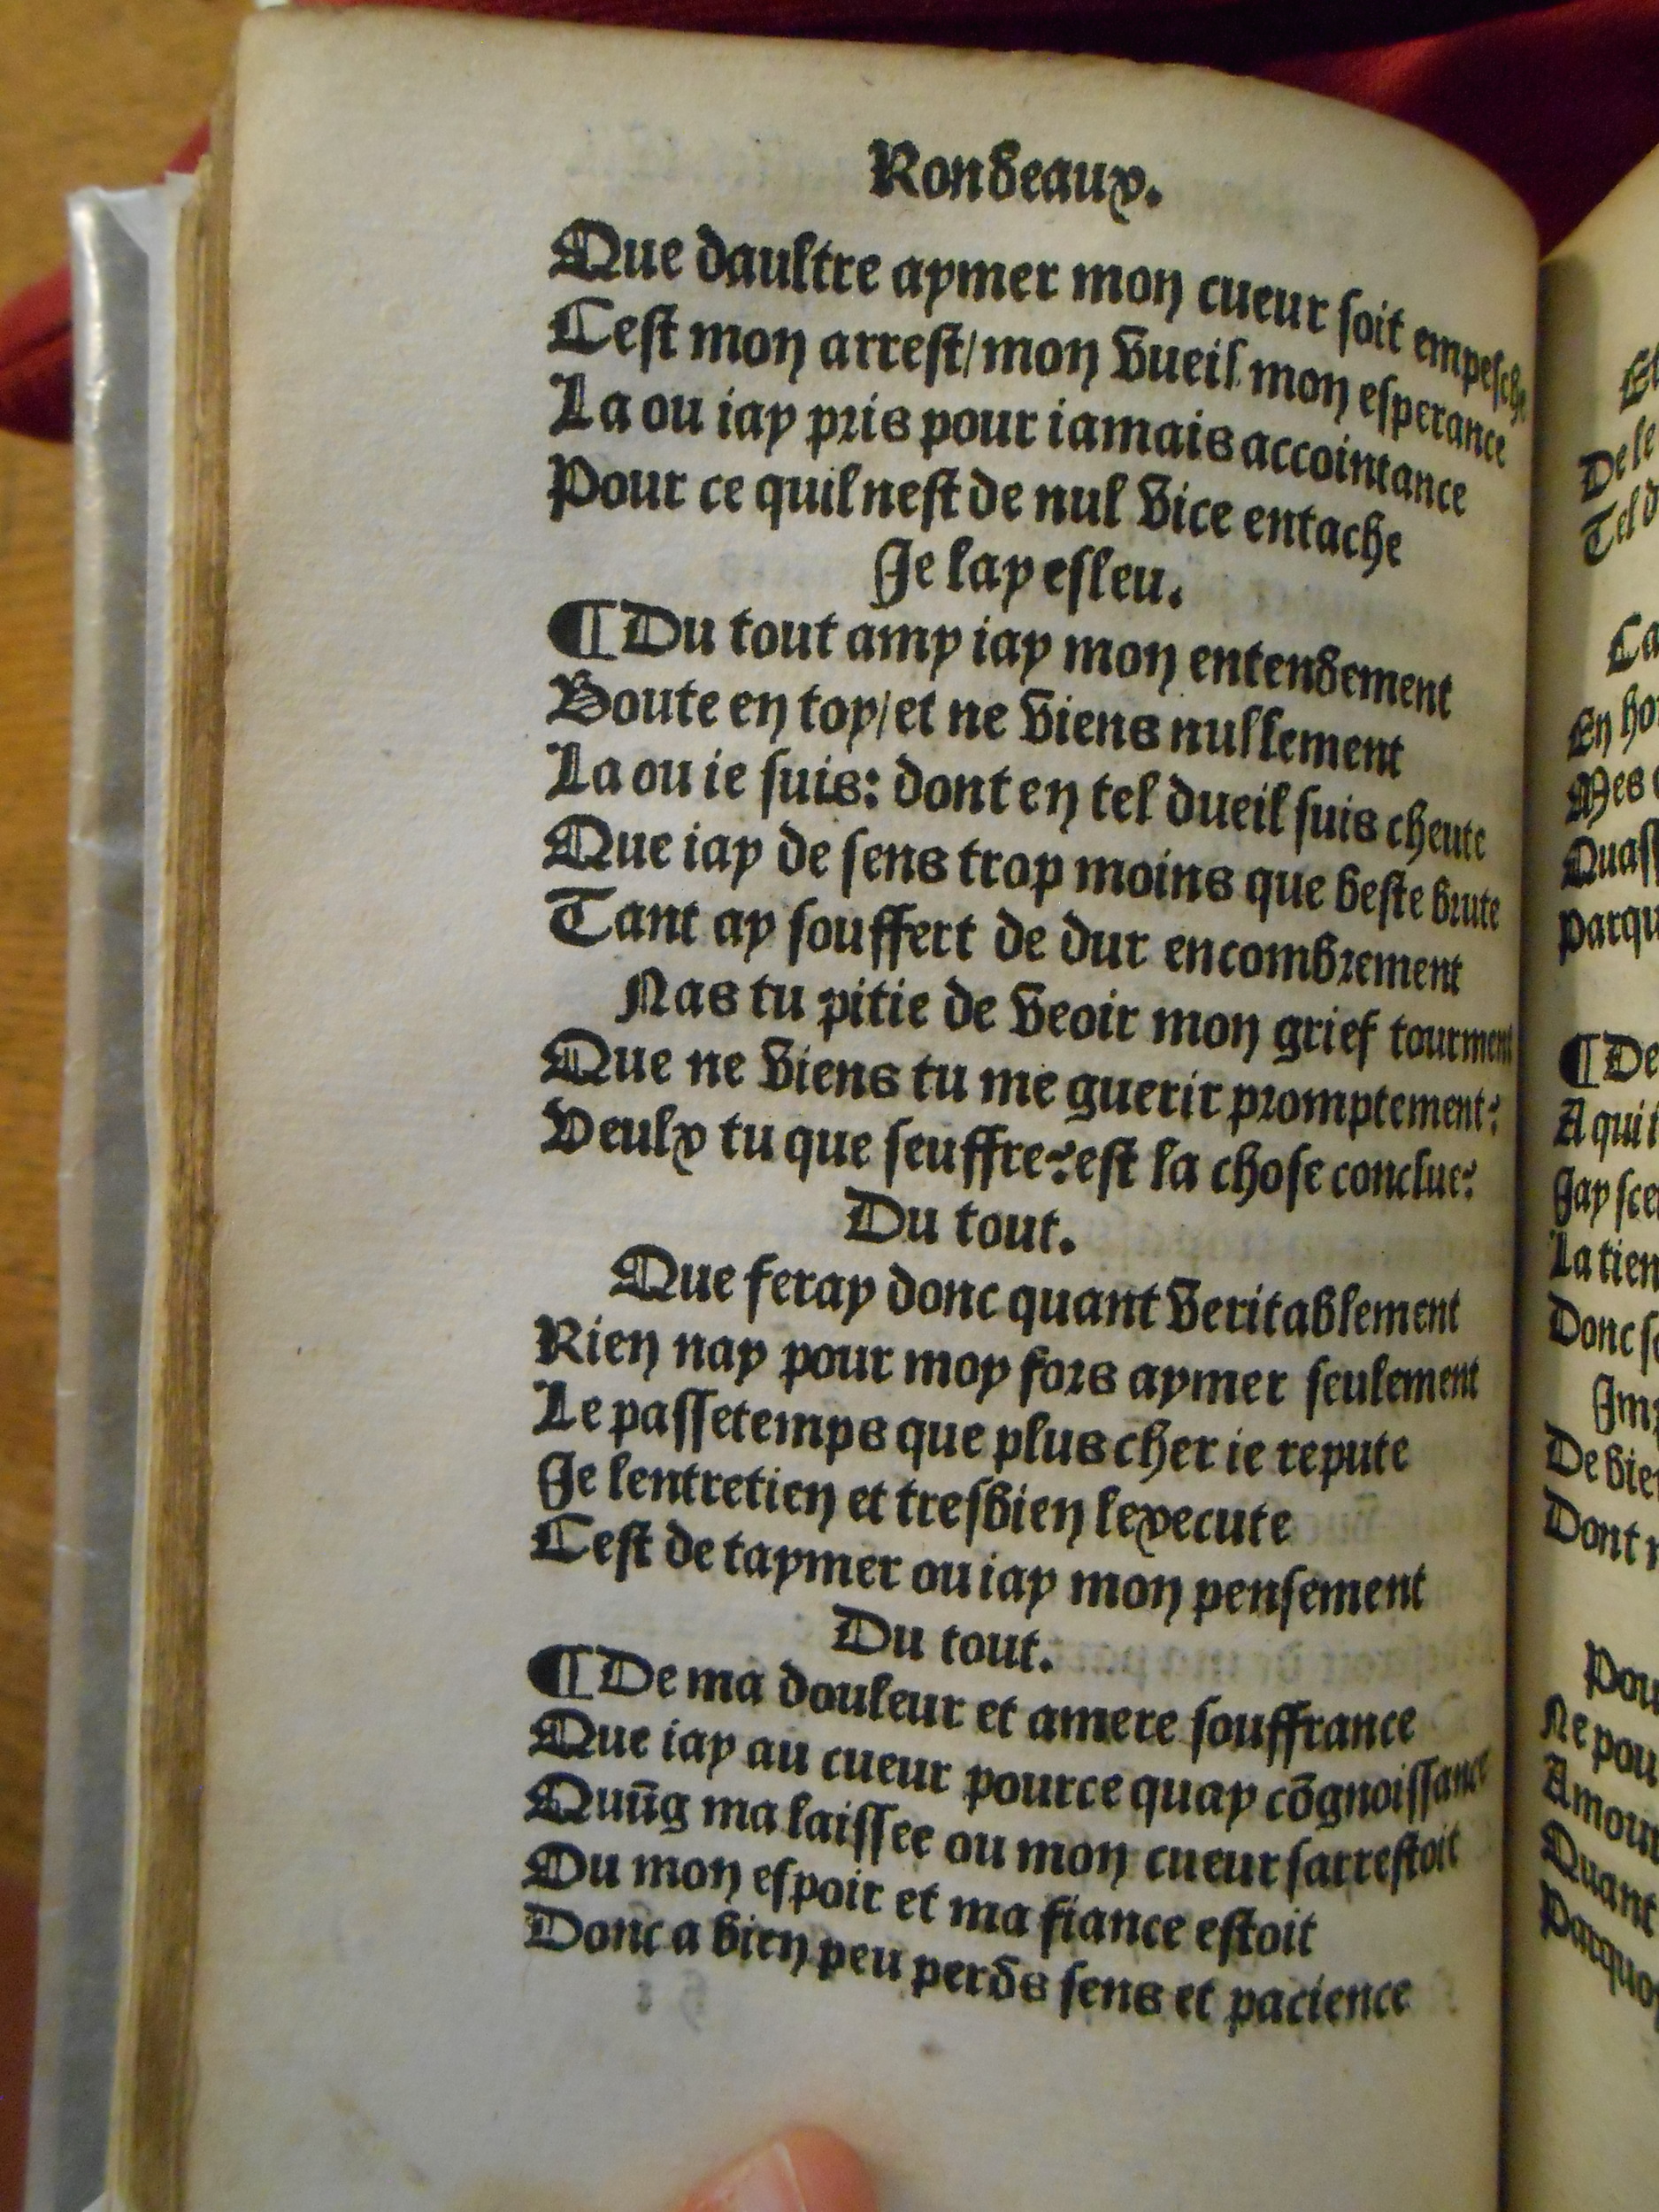 Rondeaux.
Que daultre aymer mon cueur soit empesche
Cest mon arrest/mon vueil mon esperance
La ou iay pris pour iamais accointance
Pour ce quil nest de nul vice entache
Je lay esleu.
¶Du tout amy iay mon entendement
Boute en toy/et ne viens nullement
La ou ie suis: dont en tel dueil suis cheute
Que iay de sens trop moins que beste brute
Tant ay souffert de dur encombrement
Nas tu pitie de veoir mon grief tourment
Que ne viens tu me guerir promptement?
Veulx tu que seuffre?est la chose conclue?
Du tout.
Que feray donc quant veritablement
Rien nay pour moy fors aymer seulement
Le passetemps que plus cher ie repute
Je lentretien et tresbien lexecute
Cest de taymer ou iay mon pensement
Du tout.
¶De ma douleur et amere souffrance
Que iay au cueur pource quay cõgnoissance
Quũg ma laissee ou mon cueur sarrestoit
Ou mon espoir et ma fiance estoit
Donc a bien peu perds sens et pacience
De le
Tel d
Ca
En ho
Mes
Quas
Parqu
¶De
A qui i
Jay sce
La tien
Donc se
De bie
Dont
Pou
Ne pou
Amour
Quant
Parquoy